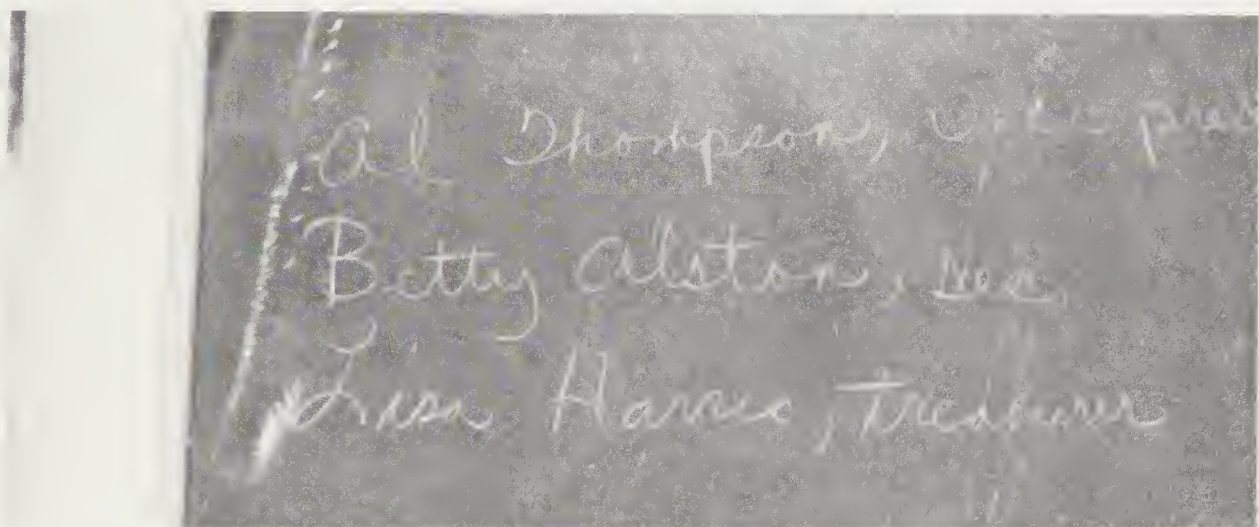 Al Thompson, vice pres
Betty Alston, sec.
Lisa Harris, treasurer